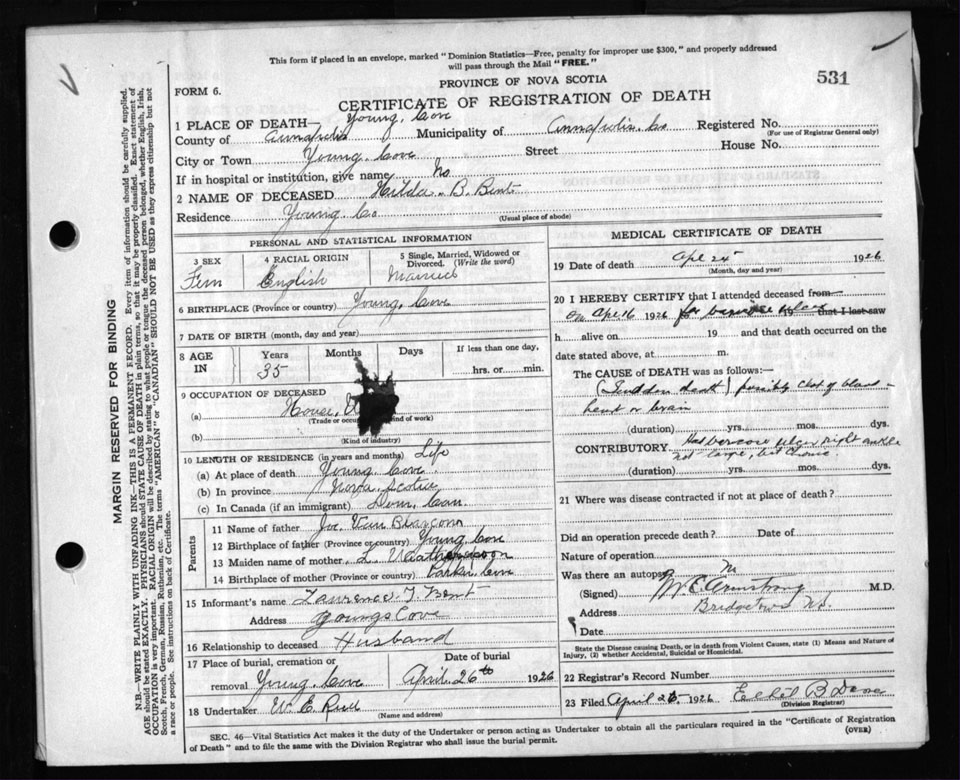 This form if placed in an envelope, marked "Dominion Statistics—Free, penalty for improper use $300," and properly addressed
will pass through the Mail "FREE."
PROVINCE OF NOVA SCOTIA
531
FORM 6.
CERTIFICATE OF REGISTRATION OF DEATH
1 PLACE OF DEATH— Young, Cove
County of Annapolis Municipality of Annapolis. Co Registered No.
(For use of Registrar General only)
City or Town Young. Cove Street House No.
If in hospital or institution, give name No
2 NAME OF DECEASED Hilda. B. Bent
Residence Young. Co
(Usual place of abode)
PERSONAL AND STATISTICAL INFORMATION
3 SEX 4 RACIAL ORIGIN 5 Single, Married, Widowed or Divorced. (Write the word)
Fem English Married
6 BIRTHPLACE (Province or country) Young, Cove
7 DATE OF BIRTH (month, day and year)
8 AGE IN Years Months Days If less than one day,
35 hrs. or min.
9 OCCUPATION OF DECEASED
(a) House,
(Trade or kind of work)
(b)
(Kind of industry)
10 LENGTH OF RESIDENCE (in years and months) Life
(a) At place of death Young Cove
(b) In province Nova. Scotia
(c) In Canada (if an immigrant) Dom. Can.
Parents
11 Name of father Joe Van Blarcom
12 Birthplace of father (Province or country) Young Cove
13 Maiden name of mother L.
14 Birthplace of mother (Province or country) Parker Cove
15 Informant's name Lawrence J Bent
Address Youngs Cove
16 Relationship to deceased Husband
17 Place of burial, cremation or Date of burial
removal Young. Cove April 26th 1926
18 Undertaker W. E.
(Name and address)
MEDICAL CERTIFICATE OF DEATH
19 Date of death Apl 25 1926
(Month, day and year)
20 I HEREBY CERTIFY that I attended deceased from
on Apl 16 1926 for 19 that I last saw
h alive on 19 and that death occurred on the
date stated above, at m.
The CAUSE of DEATH was as follows:—
(Sudden death) possibly clot of blood—
heart or brain
(duration) yrs. mos. dys.
CONTRIBUTORY Had ulcer right ankle
not large, but chronic
(duration) yrs. mos. dys.
21 Where was disease contracted if not at place of death?
Did an operation precede death? Date of
Nature of operation
Was there an autopsy No
(Signed) M E Armstrong M.D.
Address Bridgetown N.S.
Date
State the Disease causing Death, or in death from Violent Causes, state (1) Means and Nature of
Injury, (2) whether Accidental, Suicidal or Homicidal.
22 Registrar's Record Number
23 Filed April 26, 1926 B
(Division Registrar)
SEC. 46—Vital Statistics Act makes it the duty of the Undertaker or person acting as Undertaker to obtain all the particulars required in the "Certificate of Registration
of Death" and to file the same with the Division Registrar who shall issue the burial permit.
(OVER)
MARGIN RESERVED FOR BINDING
N.B.—WRITE PLAINLY WITH UNFADING INK—THIS IS A PERMANENT RECORD. Every item of information should be carefully supplied.
AGE should be stated EXACTLY. PHYSICIANS should STATE CAUSE OF DEATH in plain terms, so that it may be properly classified. Exact statement of
OCCUPATION is very important. RACIAL ORIGIN will be described by stating to what people or tongue the deceased person belonged, whether English, Irish,
Scotch, French, German, Russian, Ruthenian, etc. The terms "AMERICAN" or "CANADIAN" SHOULD NOT BE USED as they express citizenship but not
a race or people. See instructions on back of Certificate.